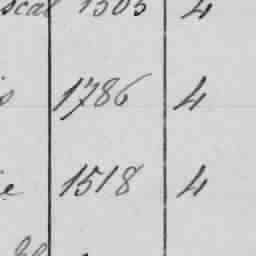 scal 1505 4
1786 4
1518 4